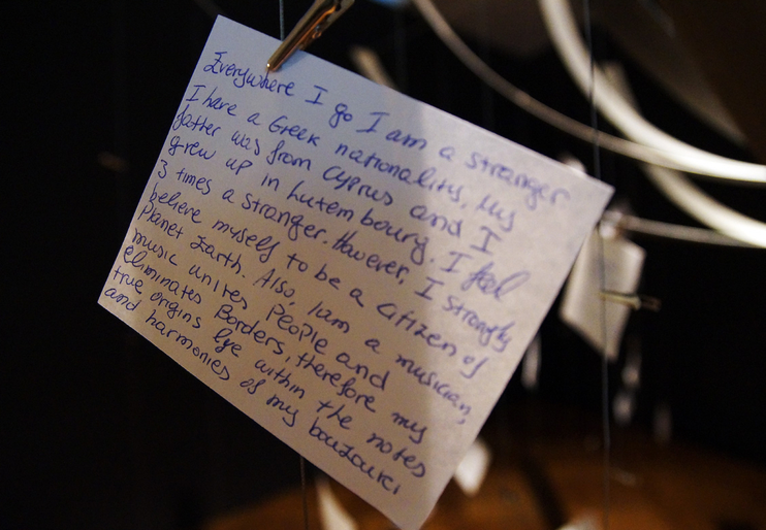 Everywhere I go I am a stranger
I have a Greek nationality, my
fatter was from Cyprus and I
grew up in Lutembourg. I feel
3 times a stranger. However, I strongly
believe myself to be a citizen of
Planet Earth. Also, I am a musician,
music unites People and
Eliminates Borders, therefore my
true origins lye within the notes
and harmonies of my bouzouki